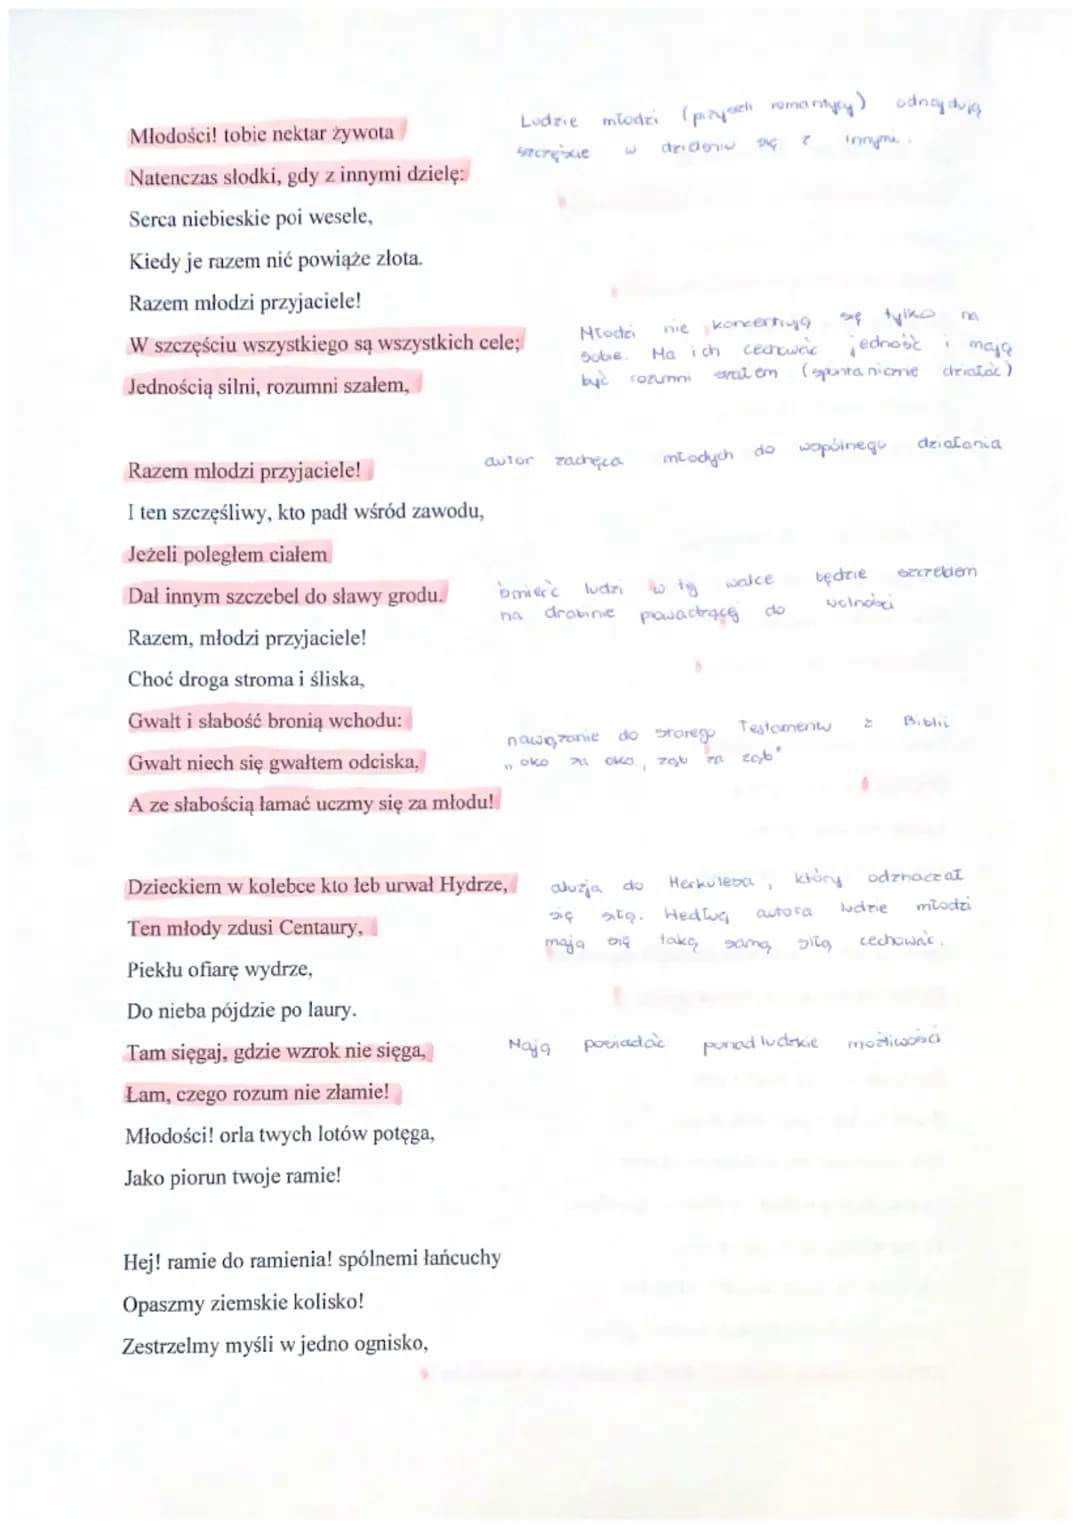 Młodości! tobie nektar żywota
Natenczas słodki, gdy z innymi dzielę:
Ludzie młodzi (przyszli romantycy) odnajdują
szczęście w dzieleniu się z innymi.
Serca niebieskie poi wesele,
Kiedy je razem nić powiąże złota.
Razem młodzi przyjaciele!
W szczęściu wszystkiego są wszystkich cele;
Jednością silni, rozumni szałem,
Młodzi nie koncentrują się tylko na
sobie. Ma ich cechować jedność i mają
być rozumni szałem (spontanicznie działać)
Razem młodzi przyjaciele!
autor zachęca młodych do wspólnego działania
I ten szczęśliwy, kto padł wśród zawodu,
Jeżeli poległem ciałem
Dał innym szczebel do sławy grodu.
śmierć ludzi w tej walce będzie szczeblem
na drabinie prowadzącej do wolności
Razem, młodzi przyjaciele!
Choć droga stroma i śliska,
Gwałt i słabość bronią wchodu:
Gwałt niech się gwałtem odciska,
A ze słabością łamać uczmy się za młodu!
nawiązanie do starego Testamentu z Biblii
„oko za oko, ząb za ząb"
Dzieckiem w kolebce kto łeb urwał Hydrze,
Ten młody zdusi Centaury,
aluzja do Herkulesa, który odznaczał
się siłą. Według autora ludzie młodzi
mają się taką samą siłą cechować.
Piekłu ofiarę wydrze,
Do nieba pójdzie po laury.
Tam sięgaj, gdzie wzrok nie sięga,
Łam, czego rozum nie złamie!
Mają posiadać ponad ludzkie możliwości
Młodości! orla twych lotów potęga,
Jako piorun twoje ramie!
Hej! ramie do ramienia! spólnemi łańcuchy
Opaszmy ziemskie kolisko!
Zestrzelmy myśli w jedno ognisko,